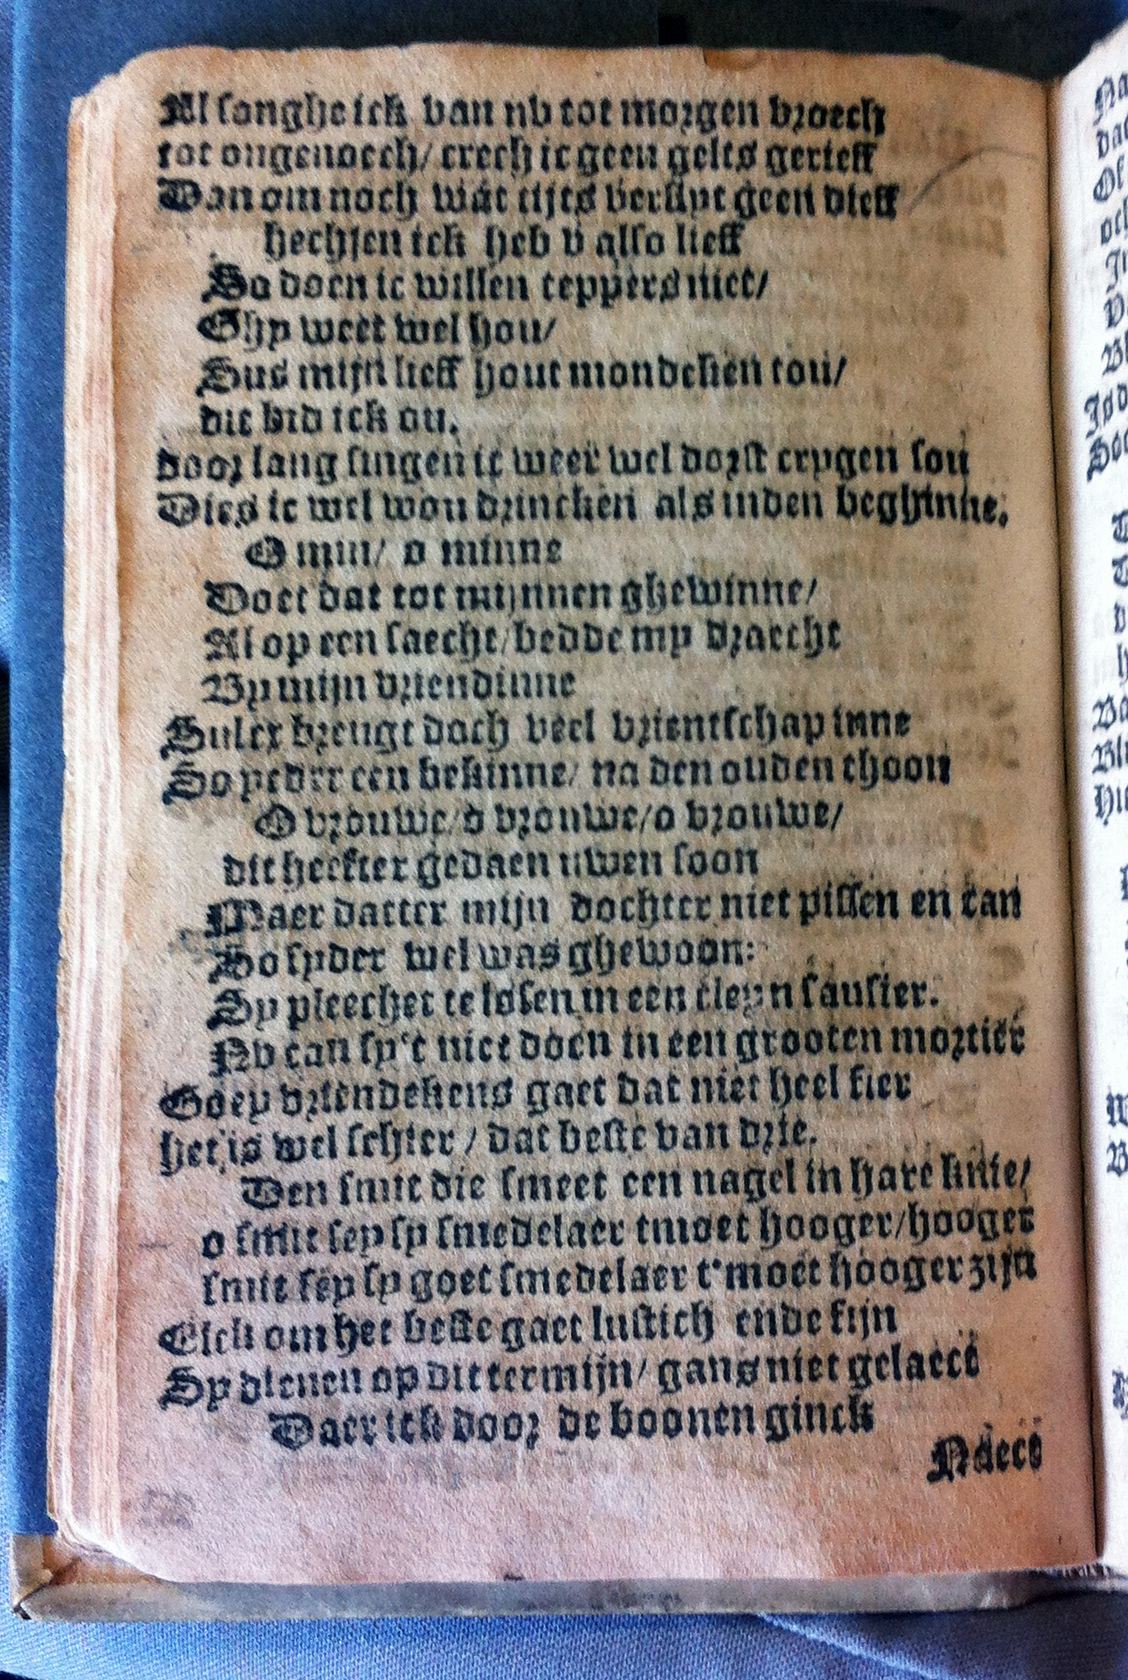 Al songhe ick van nv tot morgen vroech
tot ongenoech/ crech ic geen gelts gerieff
Dan om noch wat tijts verslyt geen dieff
hechsen ick heb v also lieff
So doen ic willen teppers niet/
Ghy weet wel hou/
Sus mijn lieff hout mondeken tou/
dit bid ick ou.
door lang singen ic weer wel dorst crygen sou
Dies ic wel wou drincken als inden beghinne.
O min/ o minne
Doet dat tot mijnnen ghewinne/
Al op een saecht/bedde my draecht
By mijn vriendinne
Sulcx brengt doch veel vrientschap inne
So yeder een bekinne/ na den ouden thoon
O vrouwe/o vrouwe/o vrouwe/
dit heefter gedaen uwen soon
Maer datter mijn dochter niet pissen en can
So syder wel was ghewoon:
Sy pleechet te losen in een cleyn sausier.
Nv can sy't niet doen in een grooten mortier
Goey vriendekens gaet dat niet heel fier
het is wel schier / dat beste van drie.
Den smit die smeet een nagel in hare knie/
o smit sey sy smedelaer tmoet hooger/hooger
smit sey sy goet smedelaer t'moet hooger zijn
Elck om het beste gaet lustich ende fijn
Sy dienen op dit termijn/ gans niet gelaect
Daer ick door de boonen ginck
Naect